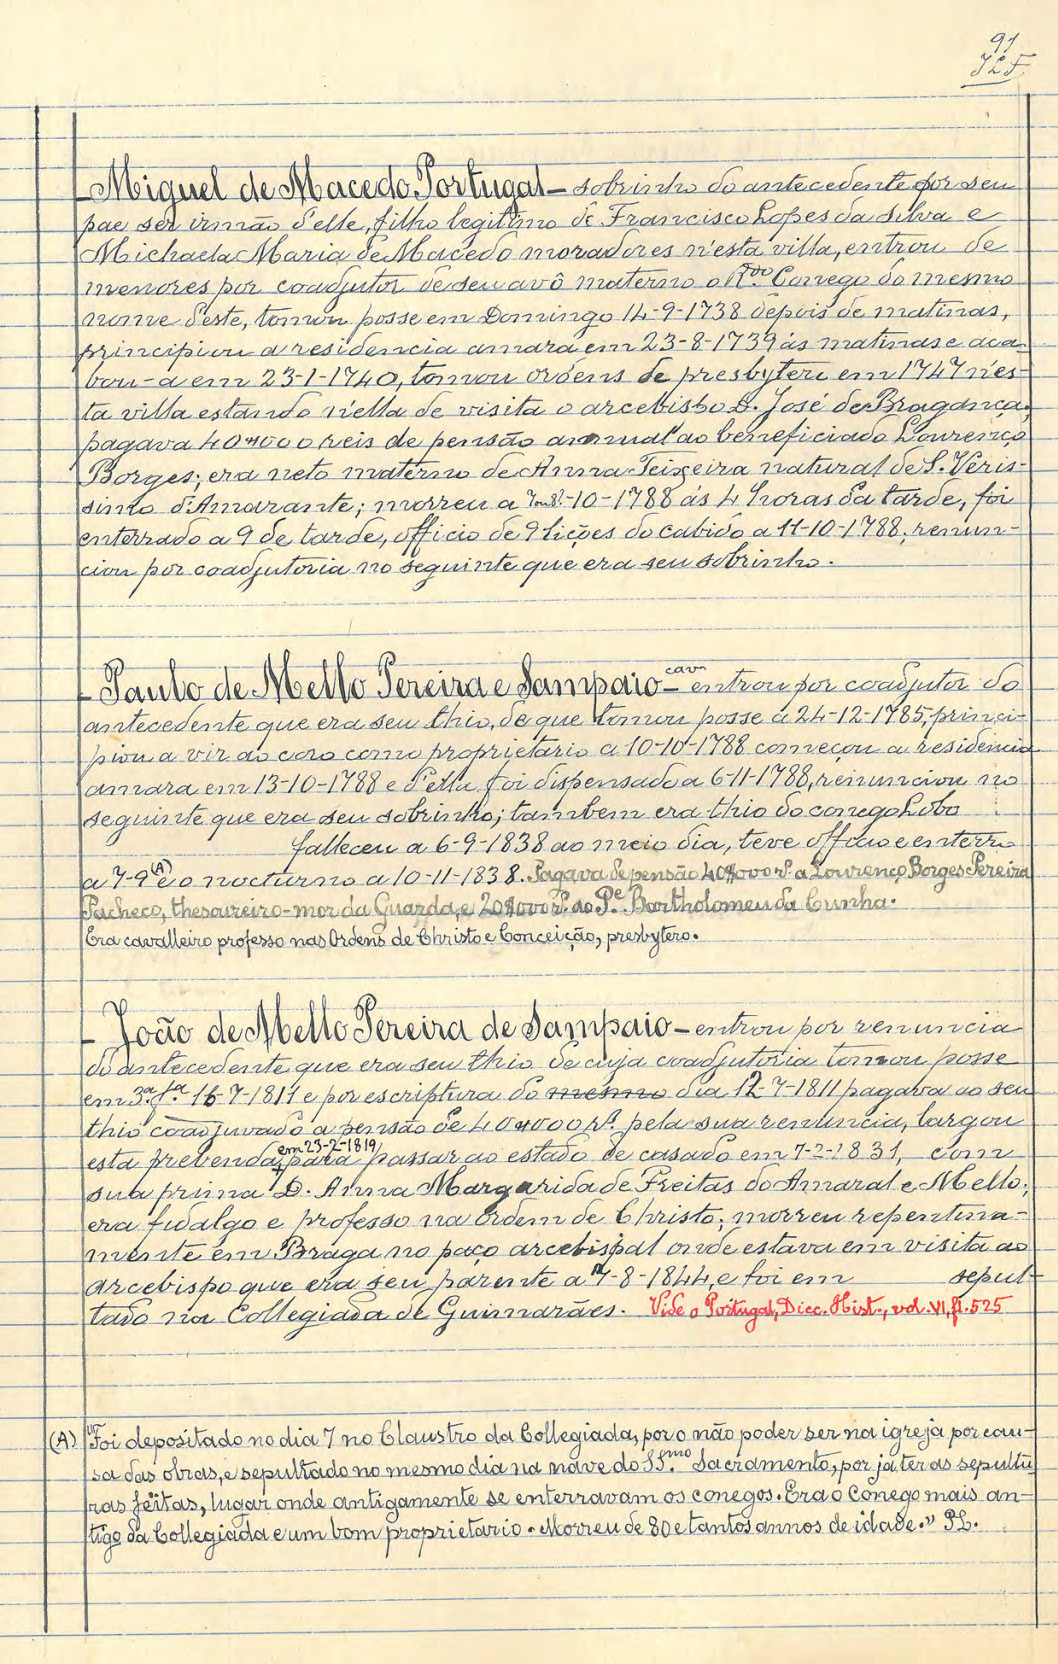 91
JLF
- Miguel de Macedo Portugal - sobrinho do antecedente por seu
pae ser irmão d'elle, filho legitimo de Francisco Lopes da Silva e
Michaela Maria de Macedo moradores n'esta villa, entrou de
menores por coadjutor de seu avô materno o R.do Conego do mesmo
nome d'este, tomou posse em Domingo 14-9-1738 depois de matinas,
principiou a residencia amara em 23-8-1739 ás matinas e aca-
bou-a em 23-1-1740, tomou ordens de presbytero em 1747 n'es-
ta villa estando n'ella de visita o arcebispo D. José de Bragança;
pagava 40$000 reis de pensão annual ao beneficiado Lourenço
Borges; era neto materno de Anna Teixeira natural de S. Veris-
simo d'Amarante; morreu a 7 ou 8?-10-1788 ás 4 horas da tarde, foi
enterrado a 9 de tarde, officio de 9 lições do cabido a 11-10-1788; renun-
ciou por coadjutoria no seguinte que era seu sobrinho.
- Paulo de Mello Pereira e Sampaio - cav.ro entrou por coadjutor do
antecedente que era seu thio, de que tomou posse a 24-12-1785, princi-
piou a vir ao coro como proprietario a 10-10-1788 começou a residencia
amara em 13-10-1788 e d'ella foi dispensado a 6-11-1788, renunciou no
seguinte que era seu sobrinho; tambem era thio do conego Lobo
falleceu a 6-9-1838 ao meio dia, teve officio e enterro
a 7-9 (A) e o nocturno a 10-11-1838. Pagava de pensão 40$000 r.s a Lourenço Borges Pereira
Pacheco, thesoureiro-mor da Guarda, e 20$000 r.s ao P.e Bartholomeu da Cunha.
Era cavalleiro professo nas Ordens de Christo e Conceição, presbytero.
- João de Mello Pereira de Sampaio - entrou por renuncia
do antecedente que era seu thio de cuja coadjutoria tomou posse
em 3.a f.a 16-7-1811 e por escriptura do mesmo dia 12-7-1811 pagava ao seu
thio coadjuvado a pensão de 404000 r.s pela sua renuncia, largou
esta prebenda, em 23-2-1819 para passar ao estado de casado em 7-2-1831, com
sua prima D. Anna Margarida de Freitas do Amaral e Mello;
era fidalgo e professo na ordem de Christo; morreu repentina-
mente em Braga no paço arcebispal onde estava em visita ao
arcebispo que era seu parente a 7-8-1844, e foi em sepul-
tado na Collegiada de Guimarães. Vide o Portugal, Dicc. Hist., vol. VI, fl. 525
(A) "Foi depositado no dia 7 no Claustro da Collegiada, por o não poder ser na igreja por cau-
sa das obras, e sepultado no mesmo dia na nave do SS.mo Sacramento, por já ter as sepultu
ras feitas, lugar onde antigamente se enterravam os conegos. Era o Conego mais an-
tigo da Collegiada e um bom proprietario. Morreu de 80 e tantos annos de idade." P.L.